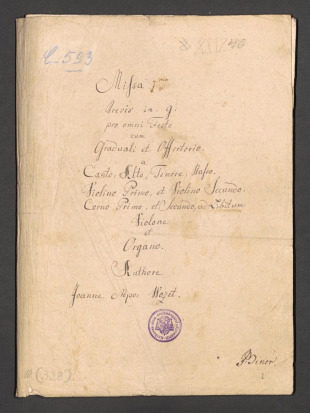 C-593
Missa
brevis in g.
pro omni Festo
cum
Graduali et Offertorio.
a
Canto, Alto, Tenore, Basso.
Violino Primo, et Violino Secundo.
Corno Primo, et Secundo, ad Libitum
Violone
et
Organo.
Authore
Joanne Nepo: Wozet.
#(328)